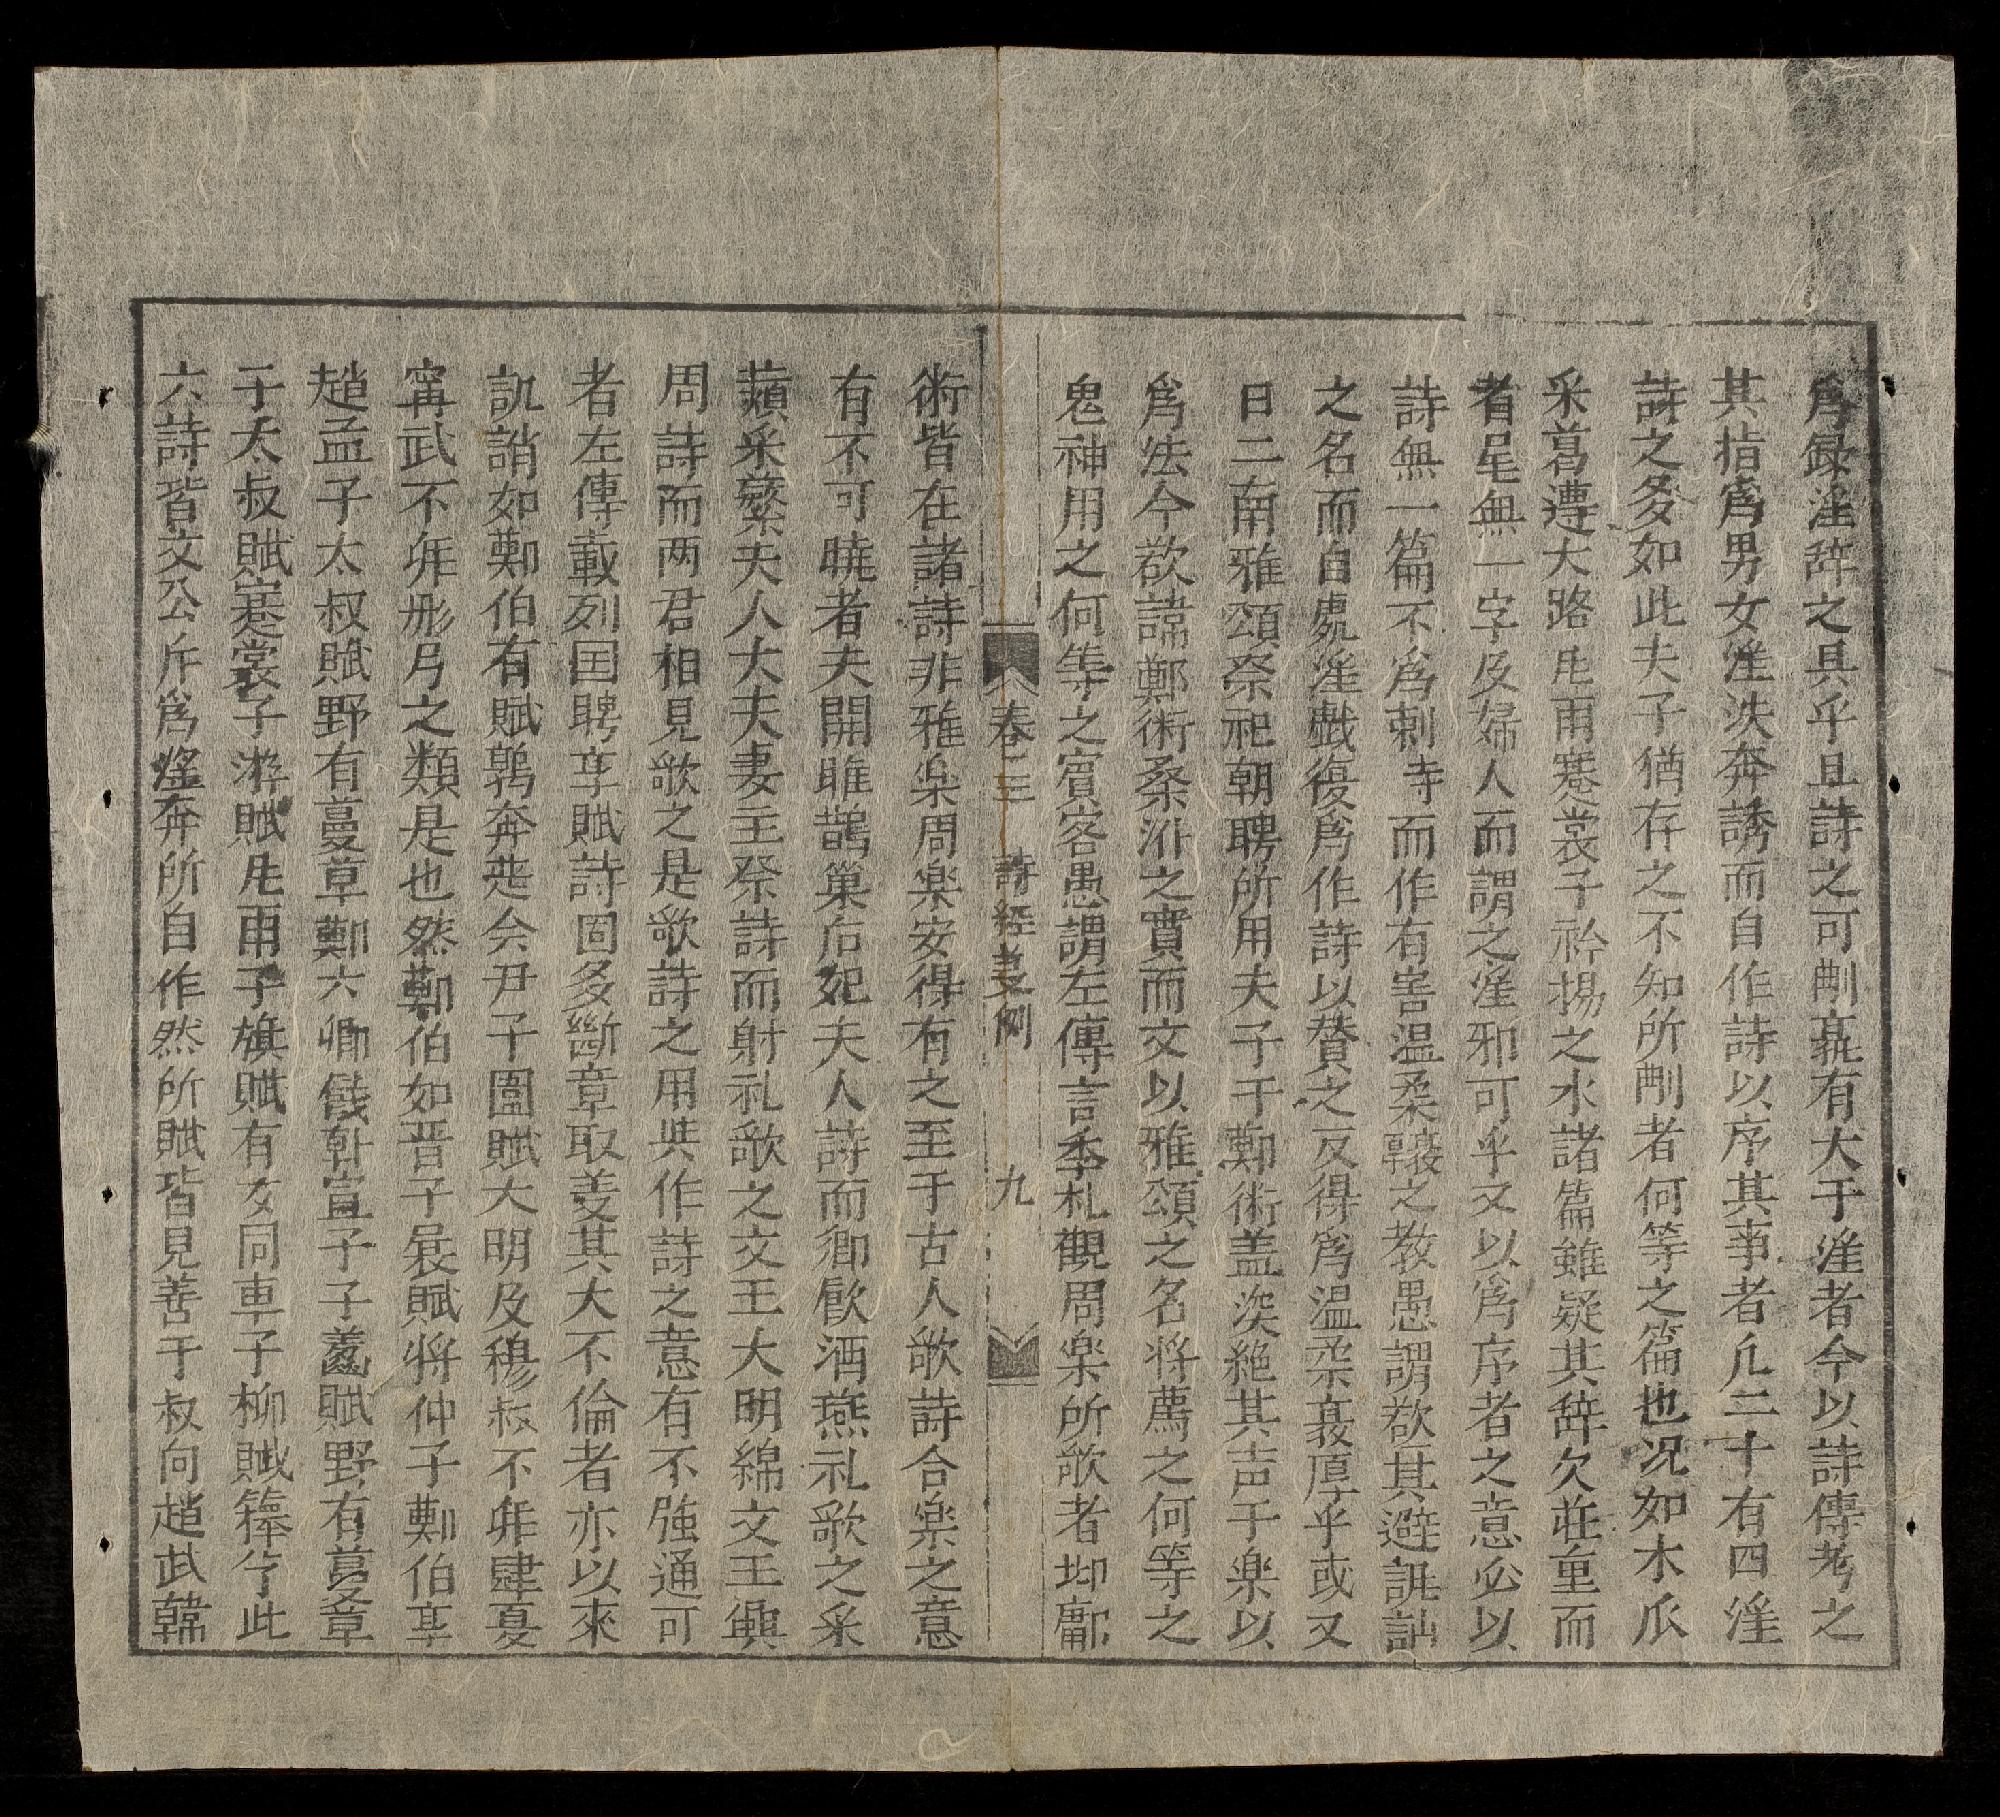 爲録淫辞之具乎且詩之可刪孰有大于淫者今以詩傳考之
其指爲男女淫泆奔誘而自作詩以序其事者凢二十有四淫
詩之多如此夫子猶存之不知所刪者何等之篇也况如木瓜
采葛遵大路風雨蹇裳子衿揚之水諸篇雖疑其辞欠莊重而
者是無一字及婦人而謂之淫邪可乎又以爲序者之意必以
詩無一篇不爲刺時而作有害温柔敦之教愚謂欲其避誚訕
之名而自處淫戱復爲作詩以賛之反得爲温柔敦厚乎或又
日二南雅頌祭祀朝聘所用夫子于鄭衛盖深絶其声于楽以
爲法今欲諱鄭衛桑濮之實而文以雅頌之名将薦之何等之
鬼神用之何等之賓客愚謂左傳言季札觀周楽所歌者邶鄘
卷三 詩經㐮例 九
衛皆在諸詩非雅楽周楽安得有之至于古人歌詩合楽之意
有不可曉者夫開雎鵲巢后妃夫人詩而卿飮酒燕礼歌之采
蘋采蘩夫人大夫妻主祭詩而射礼歌之文王大明綿文王興
周詩而两君相見歌之是歌詩之用與作詩之意有不強通可
者左傳載列国聘享賦詩固多断章取㐮其大不倫者亦以來
訊誚如鄭伯有賦鶉奔楚令尹子圍賦大明及穆叔不拜肆夏
寗武不拜彤弓之類是也然鄭伯如晋子展賦将仲子鄭伯享
趙孟子太叔賦野有蔓草鄭六卿餞韓宣子子齹賦野有蔓草
子太叔賦蹇裳子游賦風雨子旗賦有女同車子柳賦籜兮此
六詩皆文公斥爲淫奔所自作然所賦皆見善于叔向趙武韓